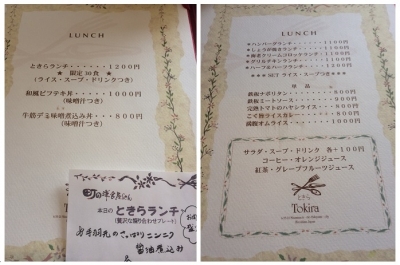 LUNCH
ときらランチ・・・・・・1200円
★ 限定30食 ★
(ライス・スープ・ドリンクつき)
和風ビフテキ丼・・・・・1000円
(味噌汁つき)
牛筋デミ味噌煮込み丼・・・800円
(味噌汁つき)
町の洋食屋さん
本日の ときらランチ
(贅沢な盛り合わせプレート)
若手羽元のさっぱりニンニク
醤油煮込み
&
LUNCH
★ハンバーグランチ・・・・1100円
★しょうが焼きランチ・・・1100円
★海老クリームコロッケランチ1100円
★グリルチキンランチ・・・1100円
★ハーフ&ハーフランチ・・1100円
★★★ SET ライス・スープつき★★★
単 品
鉄板ナポリタン・・・・・・800円
鉄板ミートソース・・・・・900円
完熟トマトのハヤシライス・800円
こく旨ライスカレー・・・・800円
満腹オムライス・・・・・1000円
サラダ・スープ・ドリンク 各+100円
コーヒー・オレンジジュース
紅茶・グレープフルーツジュース
ときら
Tokira